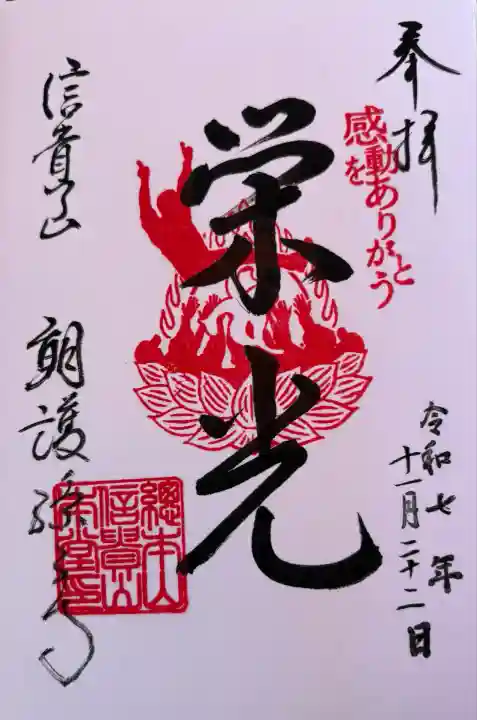 奉拝
感動を
ありがとう
栄光
令和七年
十一月二十二日
信貴山
朝護孫子寺
總本山
信貴山
本堂印